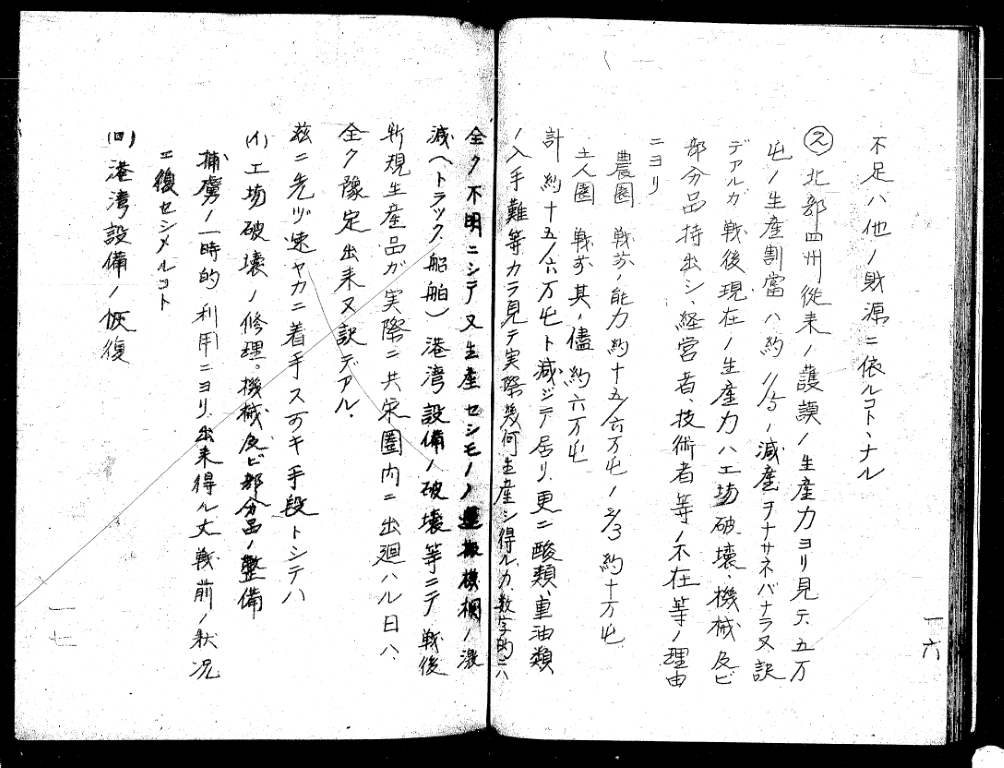 不足ハ他ノ財源ニ依ルコトヽナル
㋣北部四州従来ノ護謨ノ生産力ヨリ見テ、五万
屯ノ生産割當ハ約1/5ノ減産ヲナサネバナラヌ訳
デアルガ戦後現在ノ生産力ハ工場破壊、機械及ビ
部分品持出シ、経営者、技術者等ノ不在等ノ理由
ニヨリ
農園 戦前ノ能力約十五/六万屯ノ2/3約十万屯
土人園 戦前其ノ儘約六万屯
計 約十五/六万屯ト減ジテ居リ、更ニ酸類、重油類
ノ入手難等カラ見テ実際幾何生産シ得ルカ、数字的ニハ
一六
全ク不明ニシテ又生産セシモノノ運搬機桐ノ激
減(トラック、船舶)港湾設備ノ破壊等ニテ戦後
新規生産品ガ実際ニ共栄圏内ニ出廻ハル日ハ、
全ク豫定出来ヌ訳デアル.
茲ニ先ヅ速ヤカニ着手スヌキ手段トシテハ
(イ)工場破壊ノ修理。機械及ビ部分品ノ整備
捕虜ノ一時的利用ニヨリ出来得ル丈戦前ノ状況
ニ復セシメルコト
(ロ)港湾設備ノ恢復
一七